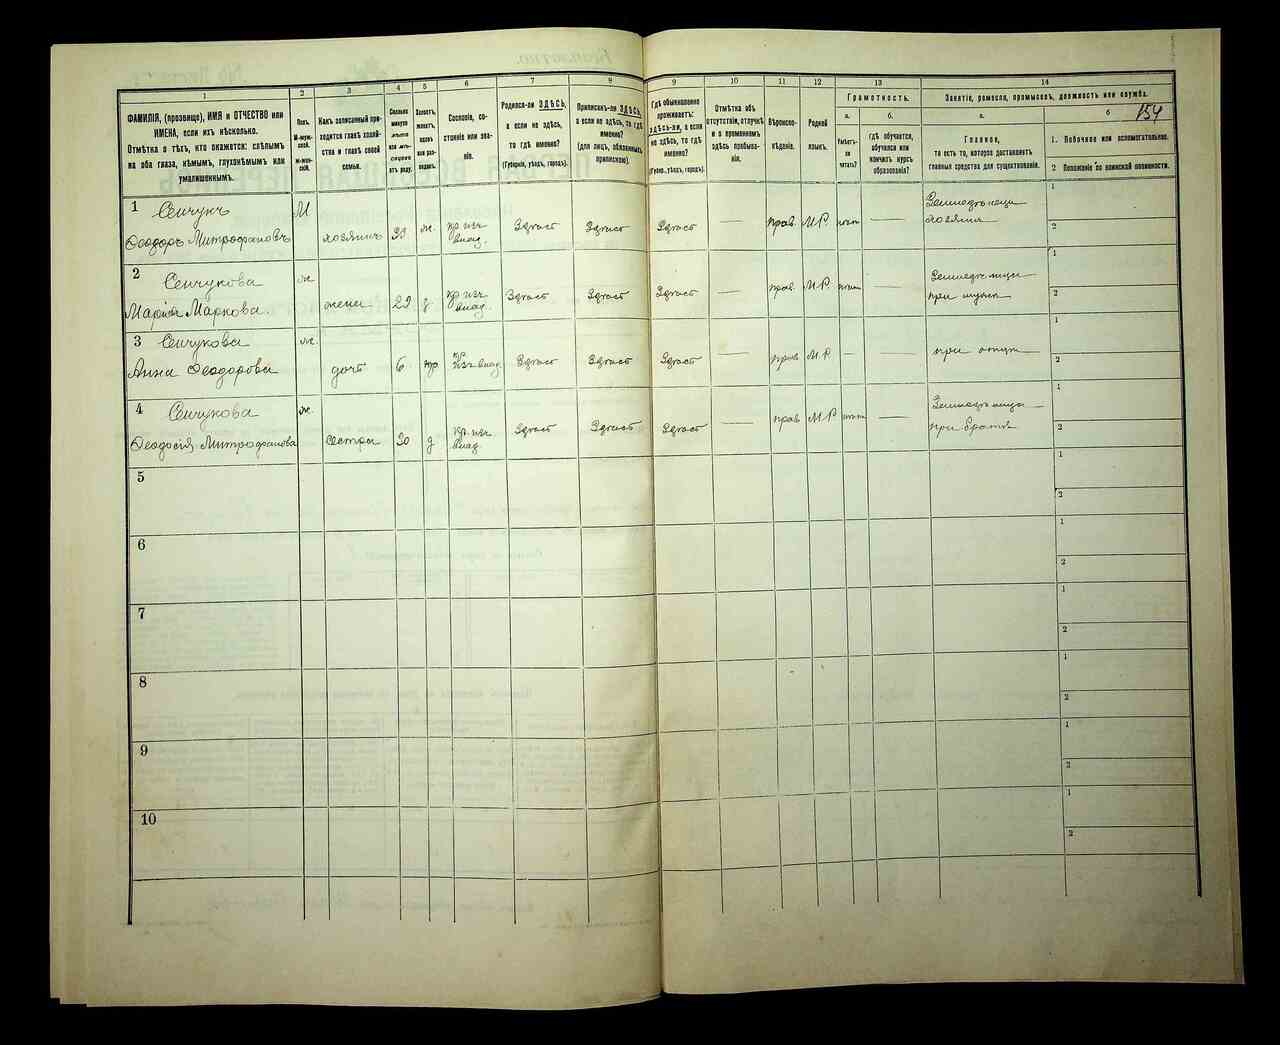 1
ФАМИЛІЯ, (прозвище), ИМЯ и ОТЧЕСТВО или
ИМЕНА, если ихъ нѣсколько.
Отмѣтка о тѣхъ, кто окажется: слѣпымъ
на оба глаза, нѣмымъ, глухонѣмымъ или
умалишеннымъ.
2
Полъ.
М-муж-
ской.
ж-жен-
скій.
3
Какъ записанный при-
ходится главѣ хозяй-
ства и главѣ своей
семьи.
4
Сколько
минуло
лѣтъ
или мѣ-
сяцевъ
отъ роду.
5
Холостъ,
женатъ,
вдовъ
или раз-
веденъ.
6
Сословіе, со-
стояніе или зва-
ніе.
7
Родился-ли ЗДѢСЬ,
а если не здѣсь,
то гдѣ именно?
(Губернія, уѣздъ, городъ).
8
Приписанъ-ли ЗДѢСЬ,
а если не здѣсь, то гдѣ
именно?
(для лицъ, обязанныхъ
припискою).
9
Гдѣ обыкновенно
проживаетъ:
здѣсь-ли, а если
не здѣсь, то гдѣ
именно?
(Губерн., уѣздъ, городъ).
10
Отмѣтка объ
отсутствіи, отлучкѣ
и о временномъ
здѣсь пребыва-
ніи.
11
Вѣроиспо-
вѣданіе.
12
Родной
языкъ.
13
Грамотность.
а.
Умѣетъ-
ли
читать?
б.
Гдѣ обучается,
обучался или
кончилъ курсъ
образованія?
14
Занятіе, ремесло, промыселъ, должность или служба.
а.
Главное,
то есть то, которое доставляетъ
главныя средства для существованія.
б
154
1. Побочное или вспомогательное.
2 Положеніе по воинской повинности.
1 Сенчукъ
Феодоръ Митрофановъ
М хозяинъ 39 ж. кр. изъ
влад.
Здѣсь Здѣсь Здѣсь — прав. М.Р. —
хозяинъ
1
2
2 Сенчукова
Марія Маркова.
ж жена 29 кр. изъ
влад.
Здѣсь Здѣсь Здѣсь — прав. М.Р.
при мужѣ
1
2
3 Сенчукова
Анна Феодорова
ж. дочь 6 кр.
изъ влад
Здѣсь Здѣсь Здѣсь — прав М.Р. — —
при отцѣ
1
2
4 Сенчукова
Феодосія Митрофанова
ж. сестра 30 д кр. изъ
влад.
Здѣсь Здѣсь Здѣсь — прав М.Р —
при братѣ
1
2
5
1
2
6
1
2
7
1
2
8
1
2
9
1
2
10
1
2